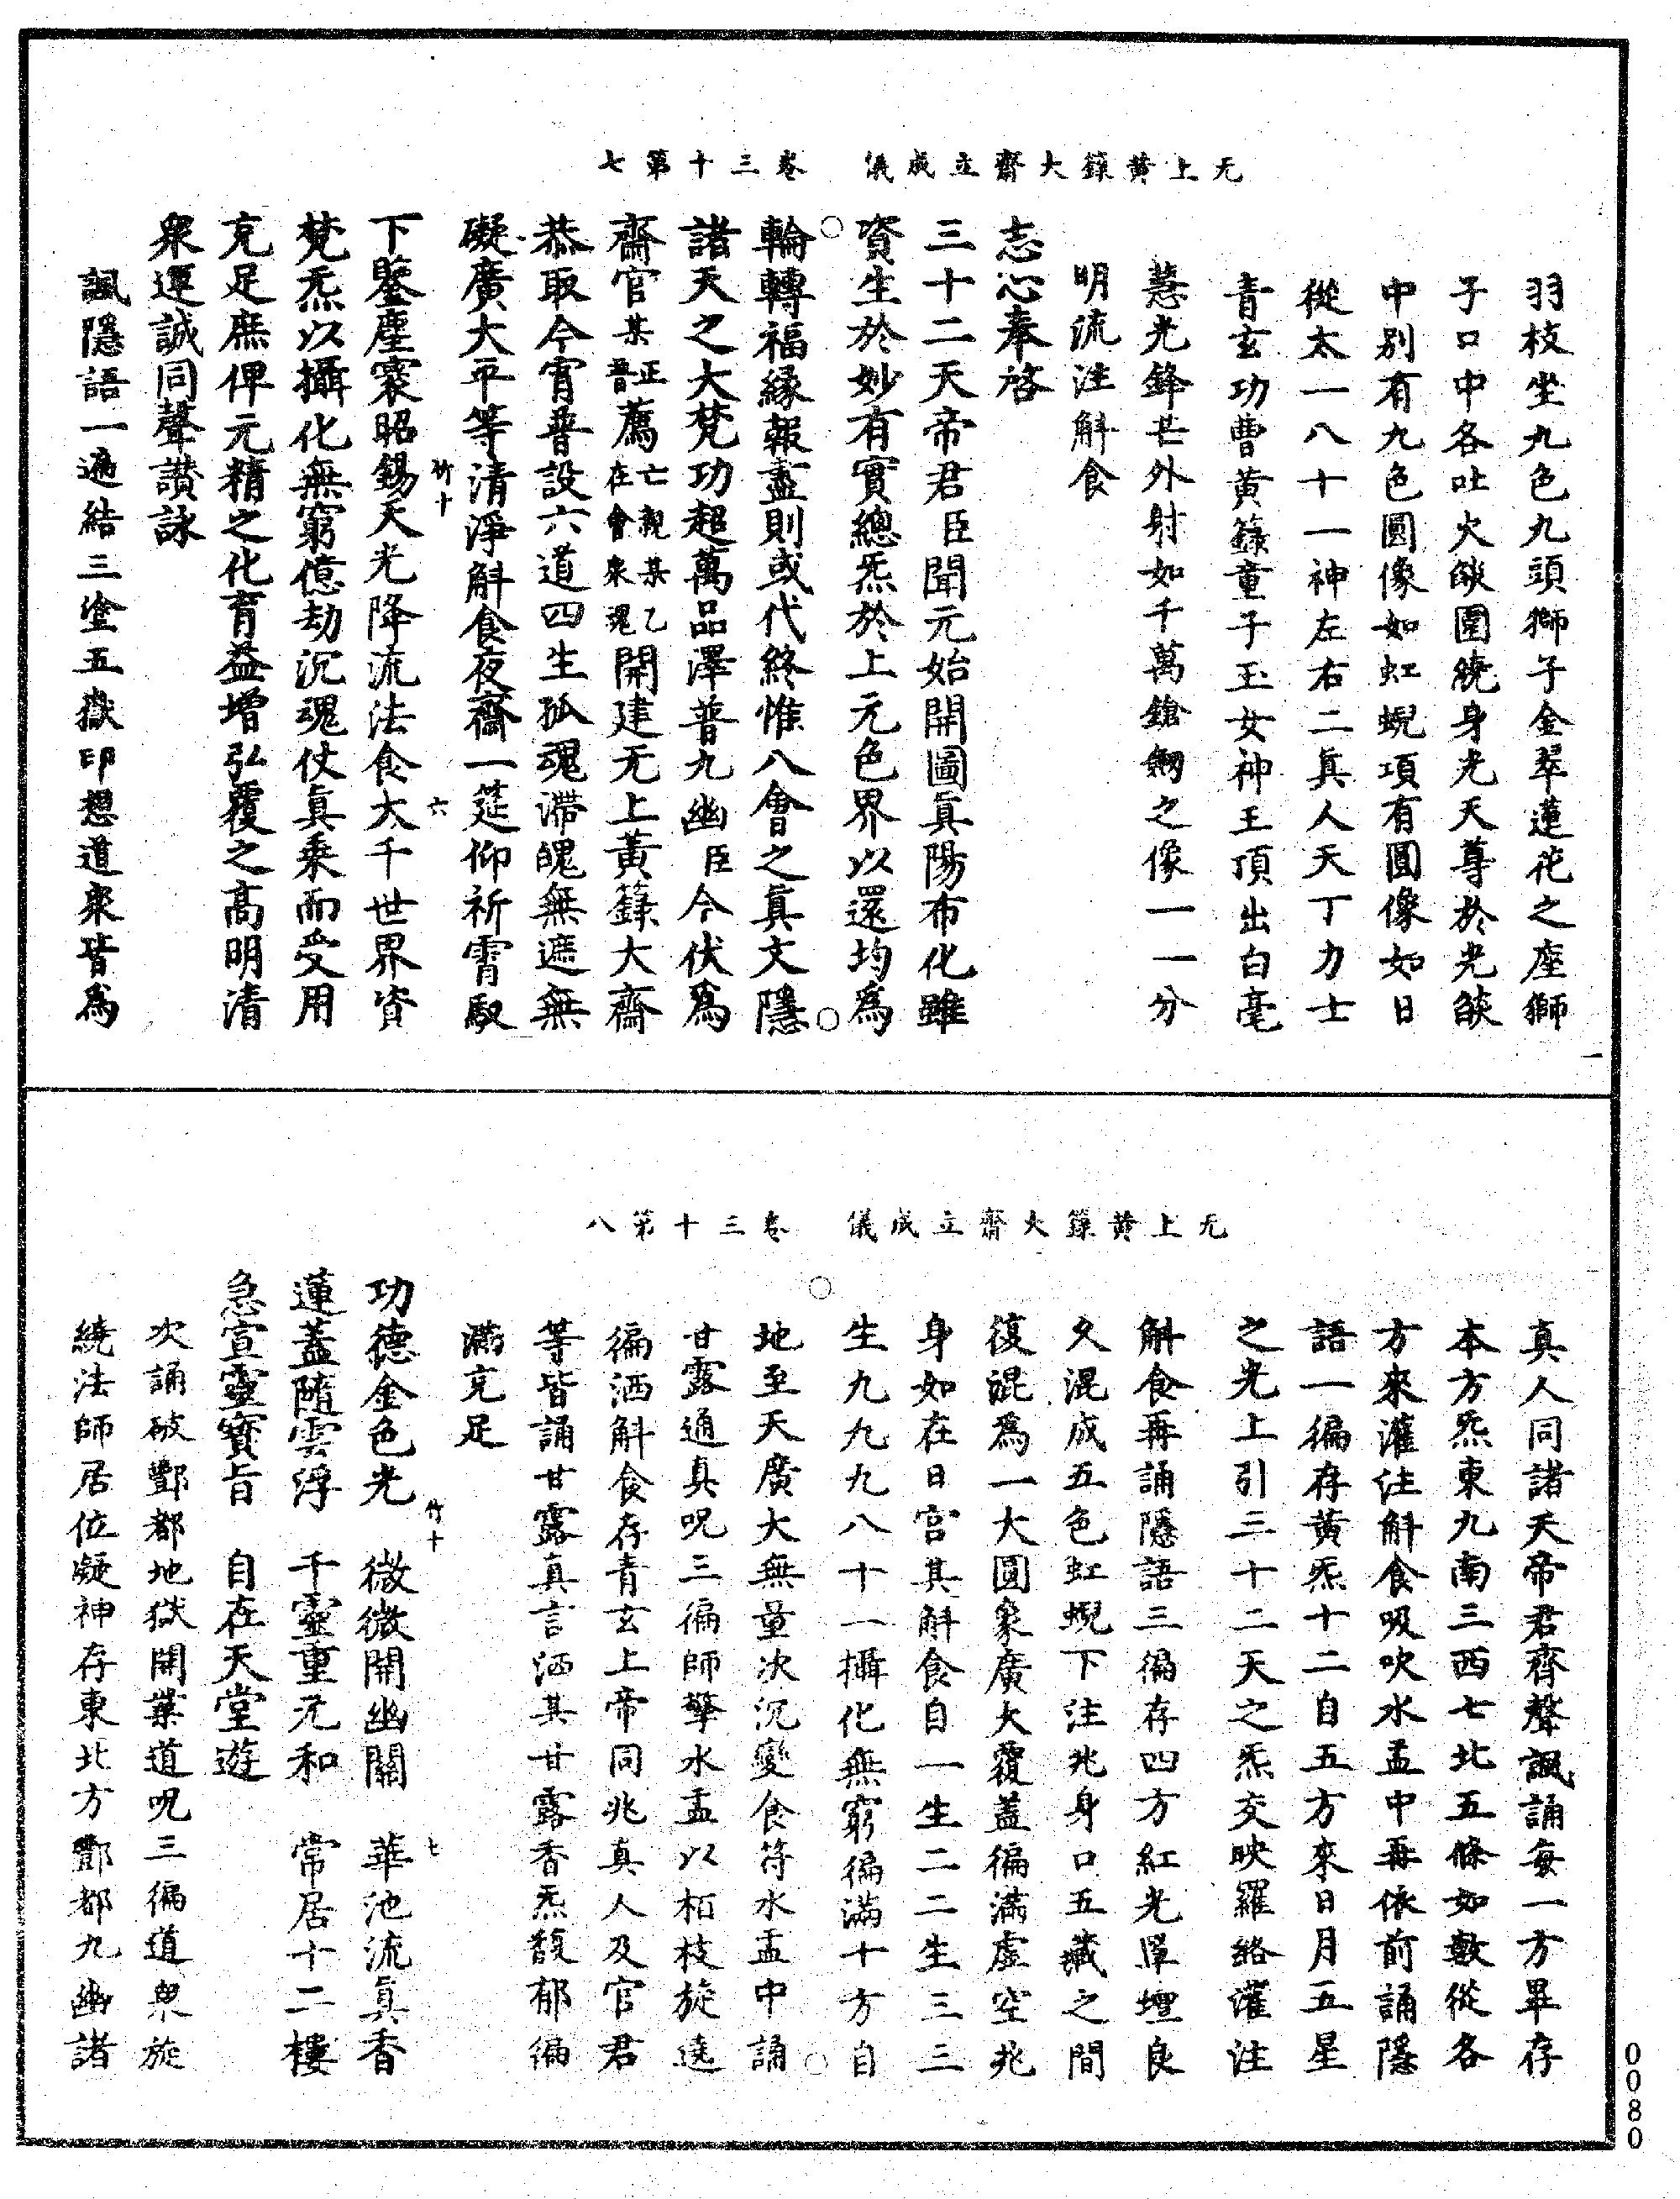 无上黃籙大齋立成儀　卷三十第七
羽枝坐九色九頭獅子金翠蓮花之座獅
子口中各吐火燄圍繞身光天尊於光燄
中別有九色圓像如虹蜺項有圓像如日
從太一八十一神左右二真人天丁力士
青玄功曹黃籙童子玉女神王頂出白毫
慧光鋒芒外射如千萬鎗劒之像一一分
明流注斛食
志心奉啓
三十二天帝君臣聞元始開圖真陽布化雖
資生於妙有實總炁於上元色界以還均為
輪轉福緣報盡則或代終惟八會之真文隱
諸天之大梵功超萬品澤普九幽臣今伏為
齋官某正薦亡親某乙普薦在會衆魂開建无上黃籙大齋
恭取今宵普設六道四生孤魂滯魄無遮無
礙廣大平等清淨斛食夜齋一筵仰祈霄馭
下鑒塵寰昭錫天光降流法食大千世界資
竹十　六
梵炁以攝化無窮億劫沉魂仗真乘而受用
充足庶俾元精之化育益增弘覆之高明清
衆運誠同聲讚詠
諷隱語一遍結三塗五嶽印想道衆皆為
无上黃籙大齋立成儀　卷三十第八
真人同諸天帝君齊聲諷誦每一方畢存
本方炁東九南三西七北五條如數從各
方來灌注斛食吸吹水盂中再依前誦隱
語一徧存黃炁十二自五方來日月五星
之光上引三十二天之炁交映羅絡灌注
斛食再誦隱語三徧存四方紅光罩壇良
久混成五色虹蜺下注兆身口五藏之間
復混為一大圓象廣大覆蓋徧滿虛空兆
身如在日宮其斛食自一生二二生三三
生九九九八十一攝化無窮徧滿十方自
地至天廣大無量次沉變食符水盂中誦
甘露通真呪三徧師擎水盂以栢枝旋遶
徧洒斛食存青玄上帝同兆真人及官君
等皆誦甘露真言洒其甘露香炁馥郁徧
滿充足
功德金色光　微微開幽關　華池流真香
竹十　七
蓮蓋隨雲浮　千靈重元和　常居十二樓
急宣靈寶旨　自在天堂遊
次誦破酆都地獄開業道呪三徧道衆旋
繞法師居位凝神存東北方酆都九幽諸
0080